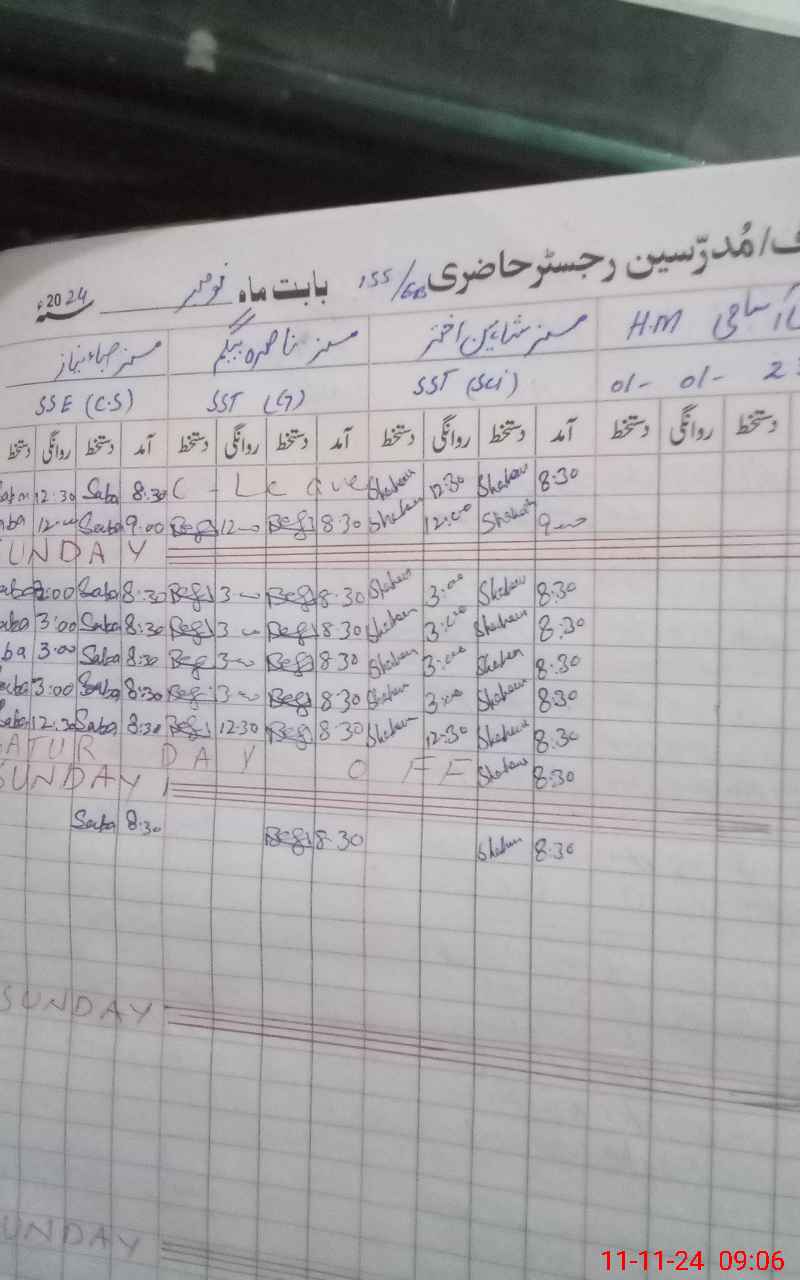 مُدرّسین رجسٹر حاضری 155/GB بابت ماہ نومبر 2024ء
خالی آسامی H.M مسز شاہین اختر مسز ناصرہ بیگم مسز صباء نیاز
01- 01- SST (Sci) SST (G) SSE (C.S)
دستخط روانگی دستخط آمد دستخط روانگی دستخط آمد دستخط روانگی دستخط آمد دستخط روانگی دستخط
12:30 Saba 8:30 C - Leave Shaheen 12:30 Shaheen 8:30
12:00 Saba 9:00 Beg 12:00 Beg 8:30 Shaheen 12:00 Shaheen 9:00
SUNDAY
3:00 Saba 8:30 Beg 3:00 Beg 8:30 Shaheen 3:00 Shaheen 8:30
3:00 Saba 8:30 Beg 3:00 Beg 8:30 Shaheen 3:00 Shaheen 8:30
3:00 Saba 8:30 Beg 3:00 Beg 8:30 Shaheen 3:00 Shaheen 8:30
3:00 Saba 8:30 Beg 3:00 Beg 8:30 Shaheen 3:00 Shaheen 8:30
12:30 Saba 8:30 Beg 12:30 Beg 8:30 Shaheen 12:30 Shaheen 8:30
SATURDAY OFF Shaheen 8:30
SUNDAY
Saba 8:30 Beg 8:30 Shaheen 8:30
SUNDAY
SUNDAY
11-11-24 09:06